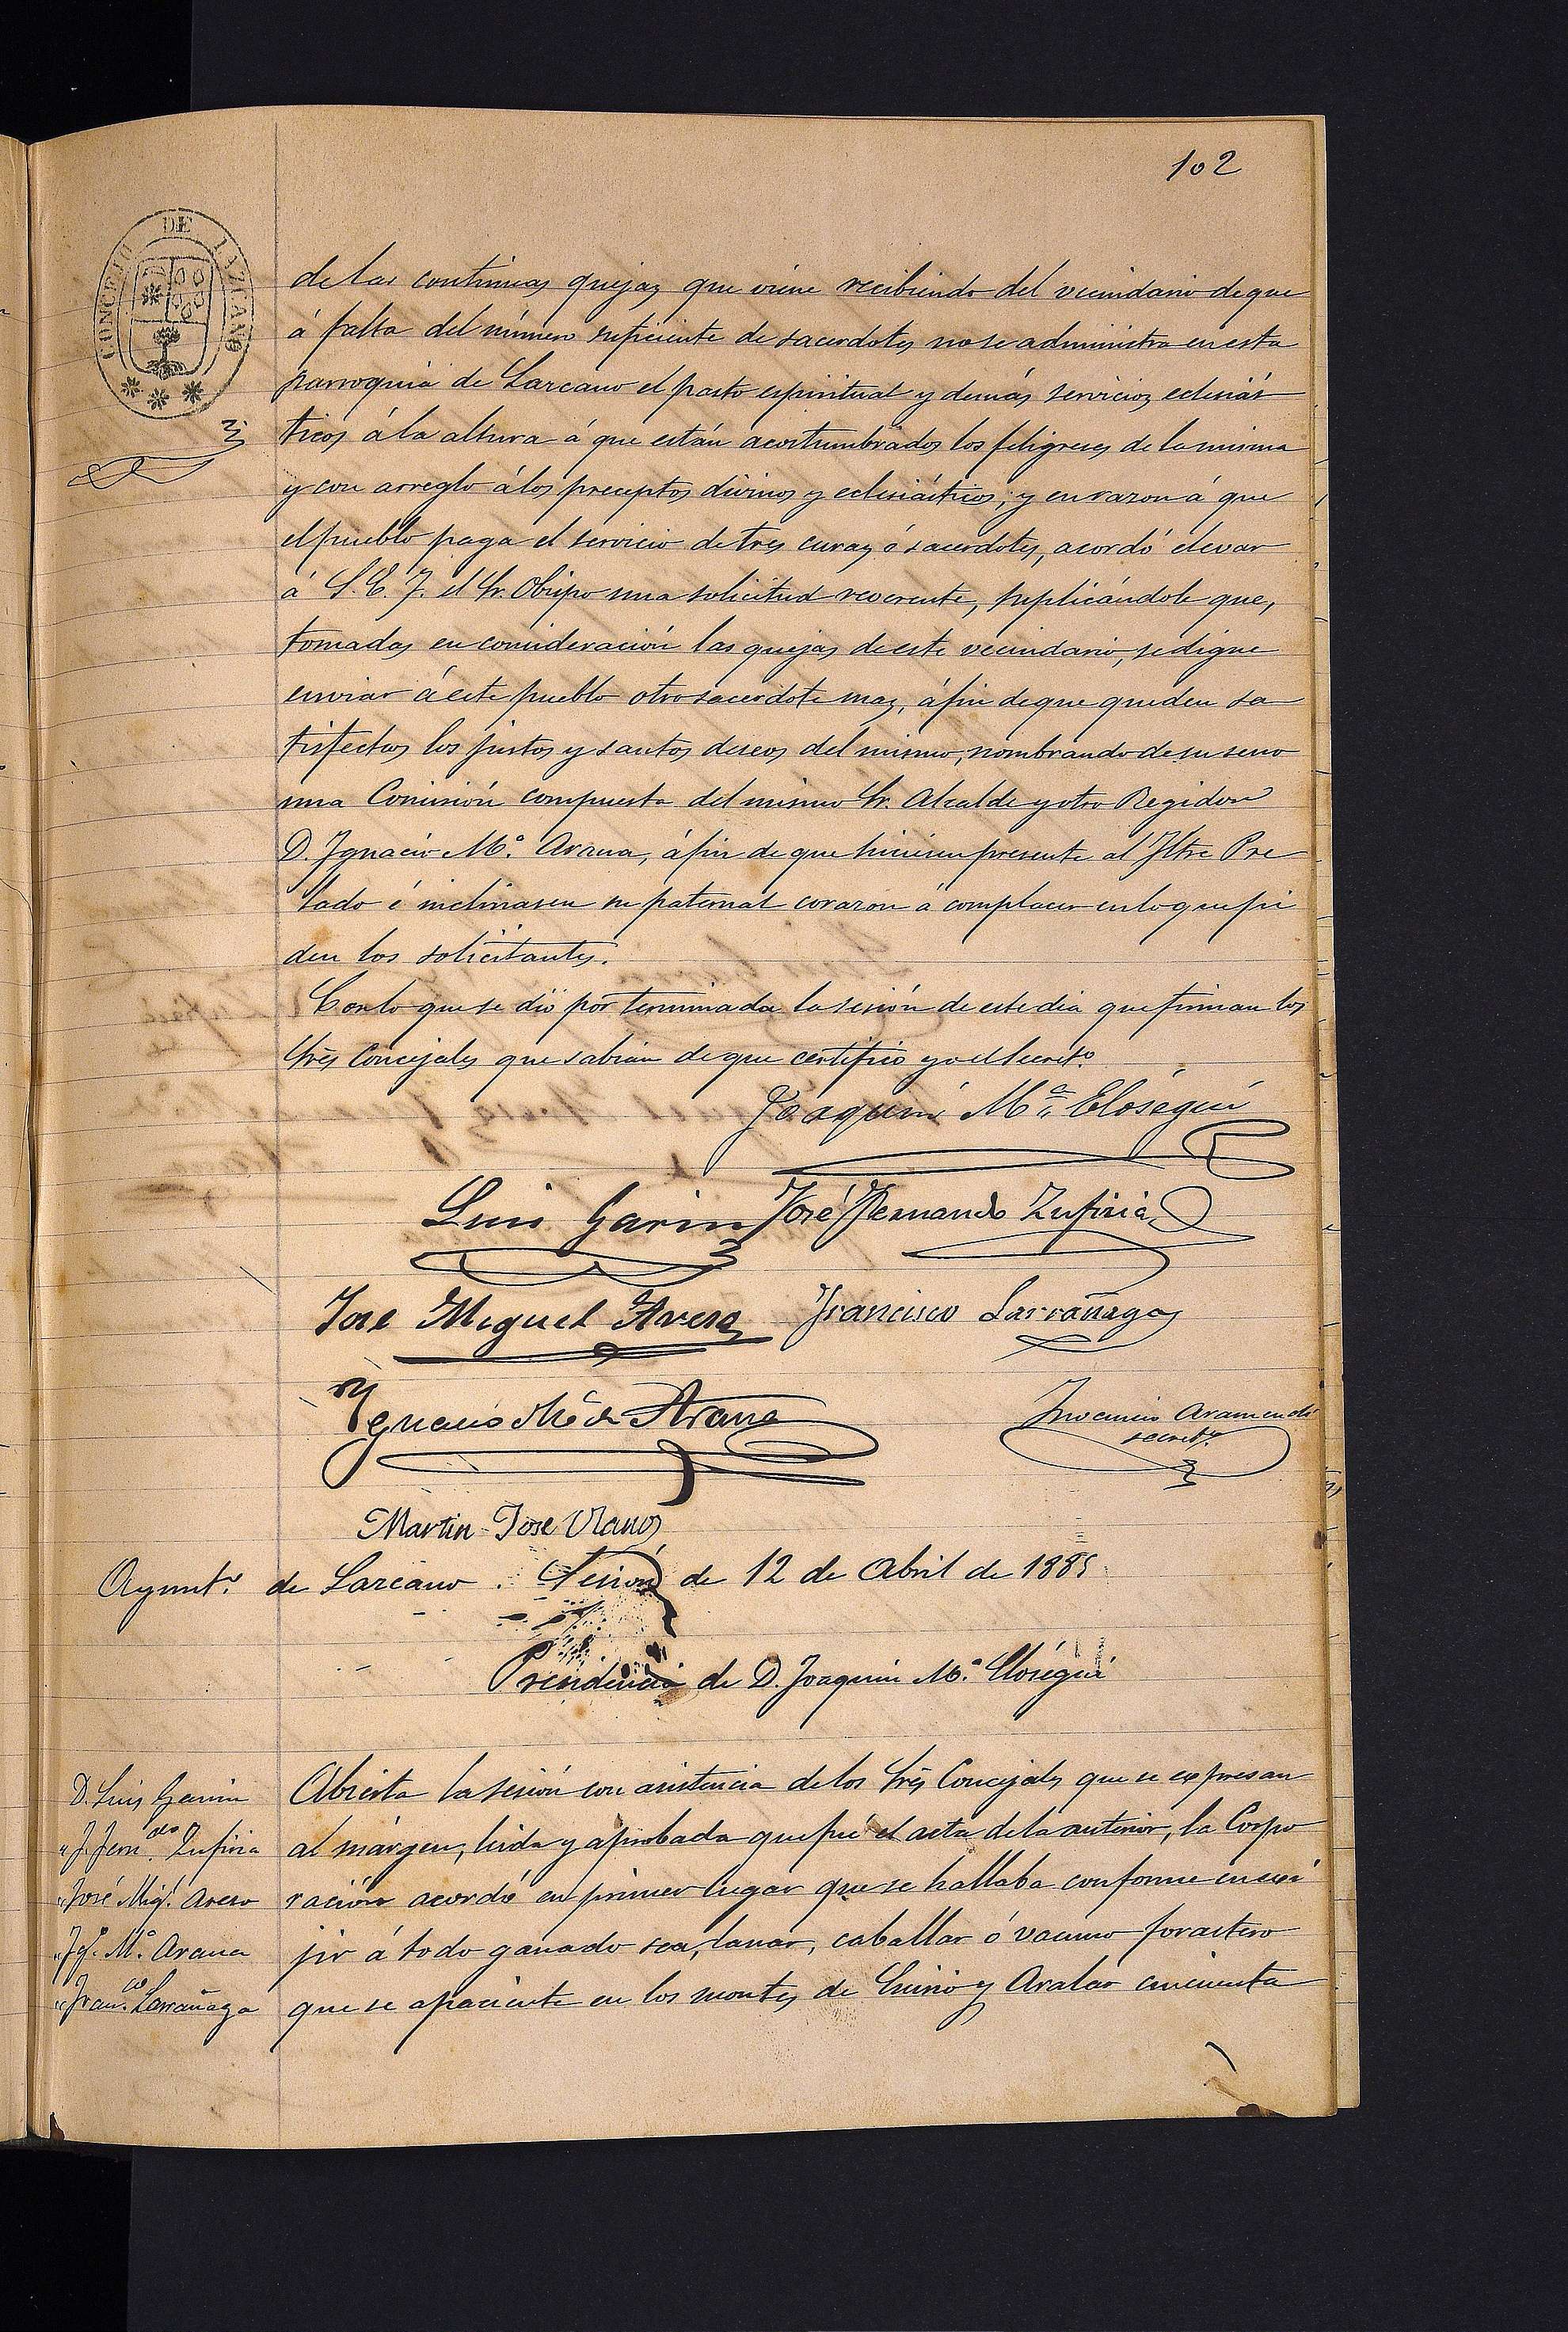 102
CONCEJO DE LAZCANO
de las continuas quejas que viene recibiendo del vecindario de que
á falta del número suficiente de sacerdotes no se administra en esta
parroquia de Lazcano el pasto espiritual y demás servicios eclesiás
ticos á la altura á que están acostumbrados los feligreses de la misma
y con arreglo á los preceptos divinos y eclesiásticos; y en razon á que
el pueblo paga el servicio de tres curas ó sacerdotes, acordó elevar
á S. E. I. el Sr. Obispo una solicitud reverente, suplicándole que,
tomadas en consideración las quejas de este vecindario, se digne
enviar á este pueblo otro sacerdote mas, á fin de que queden sa
tisfechos los justos y santos deseos del mismo, nombrando de su seno
una Comisión compuesta del mismo Sr. Alcalde y otro Regidor
D. Ignacio Mª. Arana, á fin de que hiciesen presente al Iltre Pre
lado é inclinasen su paternal corazon á complacer en lo que pi
den los solicitantes.
Con lo que se dió por terminada la sesión de este dia que firman los
Sres Concejales que sabian de que certifico yo el Secretº.
Joaquin Mª. Elósegui
Luis Garin José Fernando Zufiria
José Miguel Areso Francisco Larrañaga
Ygnacio Mª de Arana
Inocencio Aramendi
secretº.
Martin José Olano
Ayuntº. de Lazcano. Sesión de 12 de Abril de 1885
Presidencia de D. Joaquin Mª. Elósegui
D. Luis Garin
"J. Fernᵈᵒ. Zufiria
"José Migˡ. Areso
"Igº. Mª. Arana
"Franᶜᵒ. Larrañaga
Abierta la sesión con asistencia de los Sres Concejales que se expresan
al márgen, leida y aprobada que fué el acta de la anterior, la Corpo
ración acordó en primer lugar que se hallaba conforme en exi
jir á todo ganado sea, lanar, caballar ó vacuno forastero
que se apaciente en los montes de Enirio y Aralar cincuenta